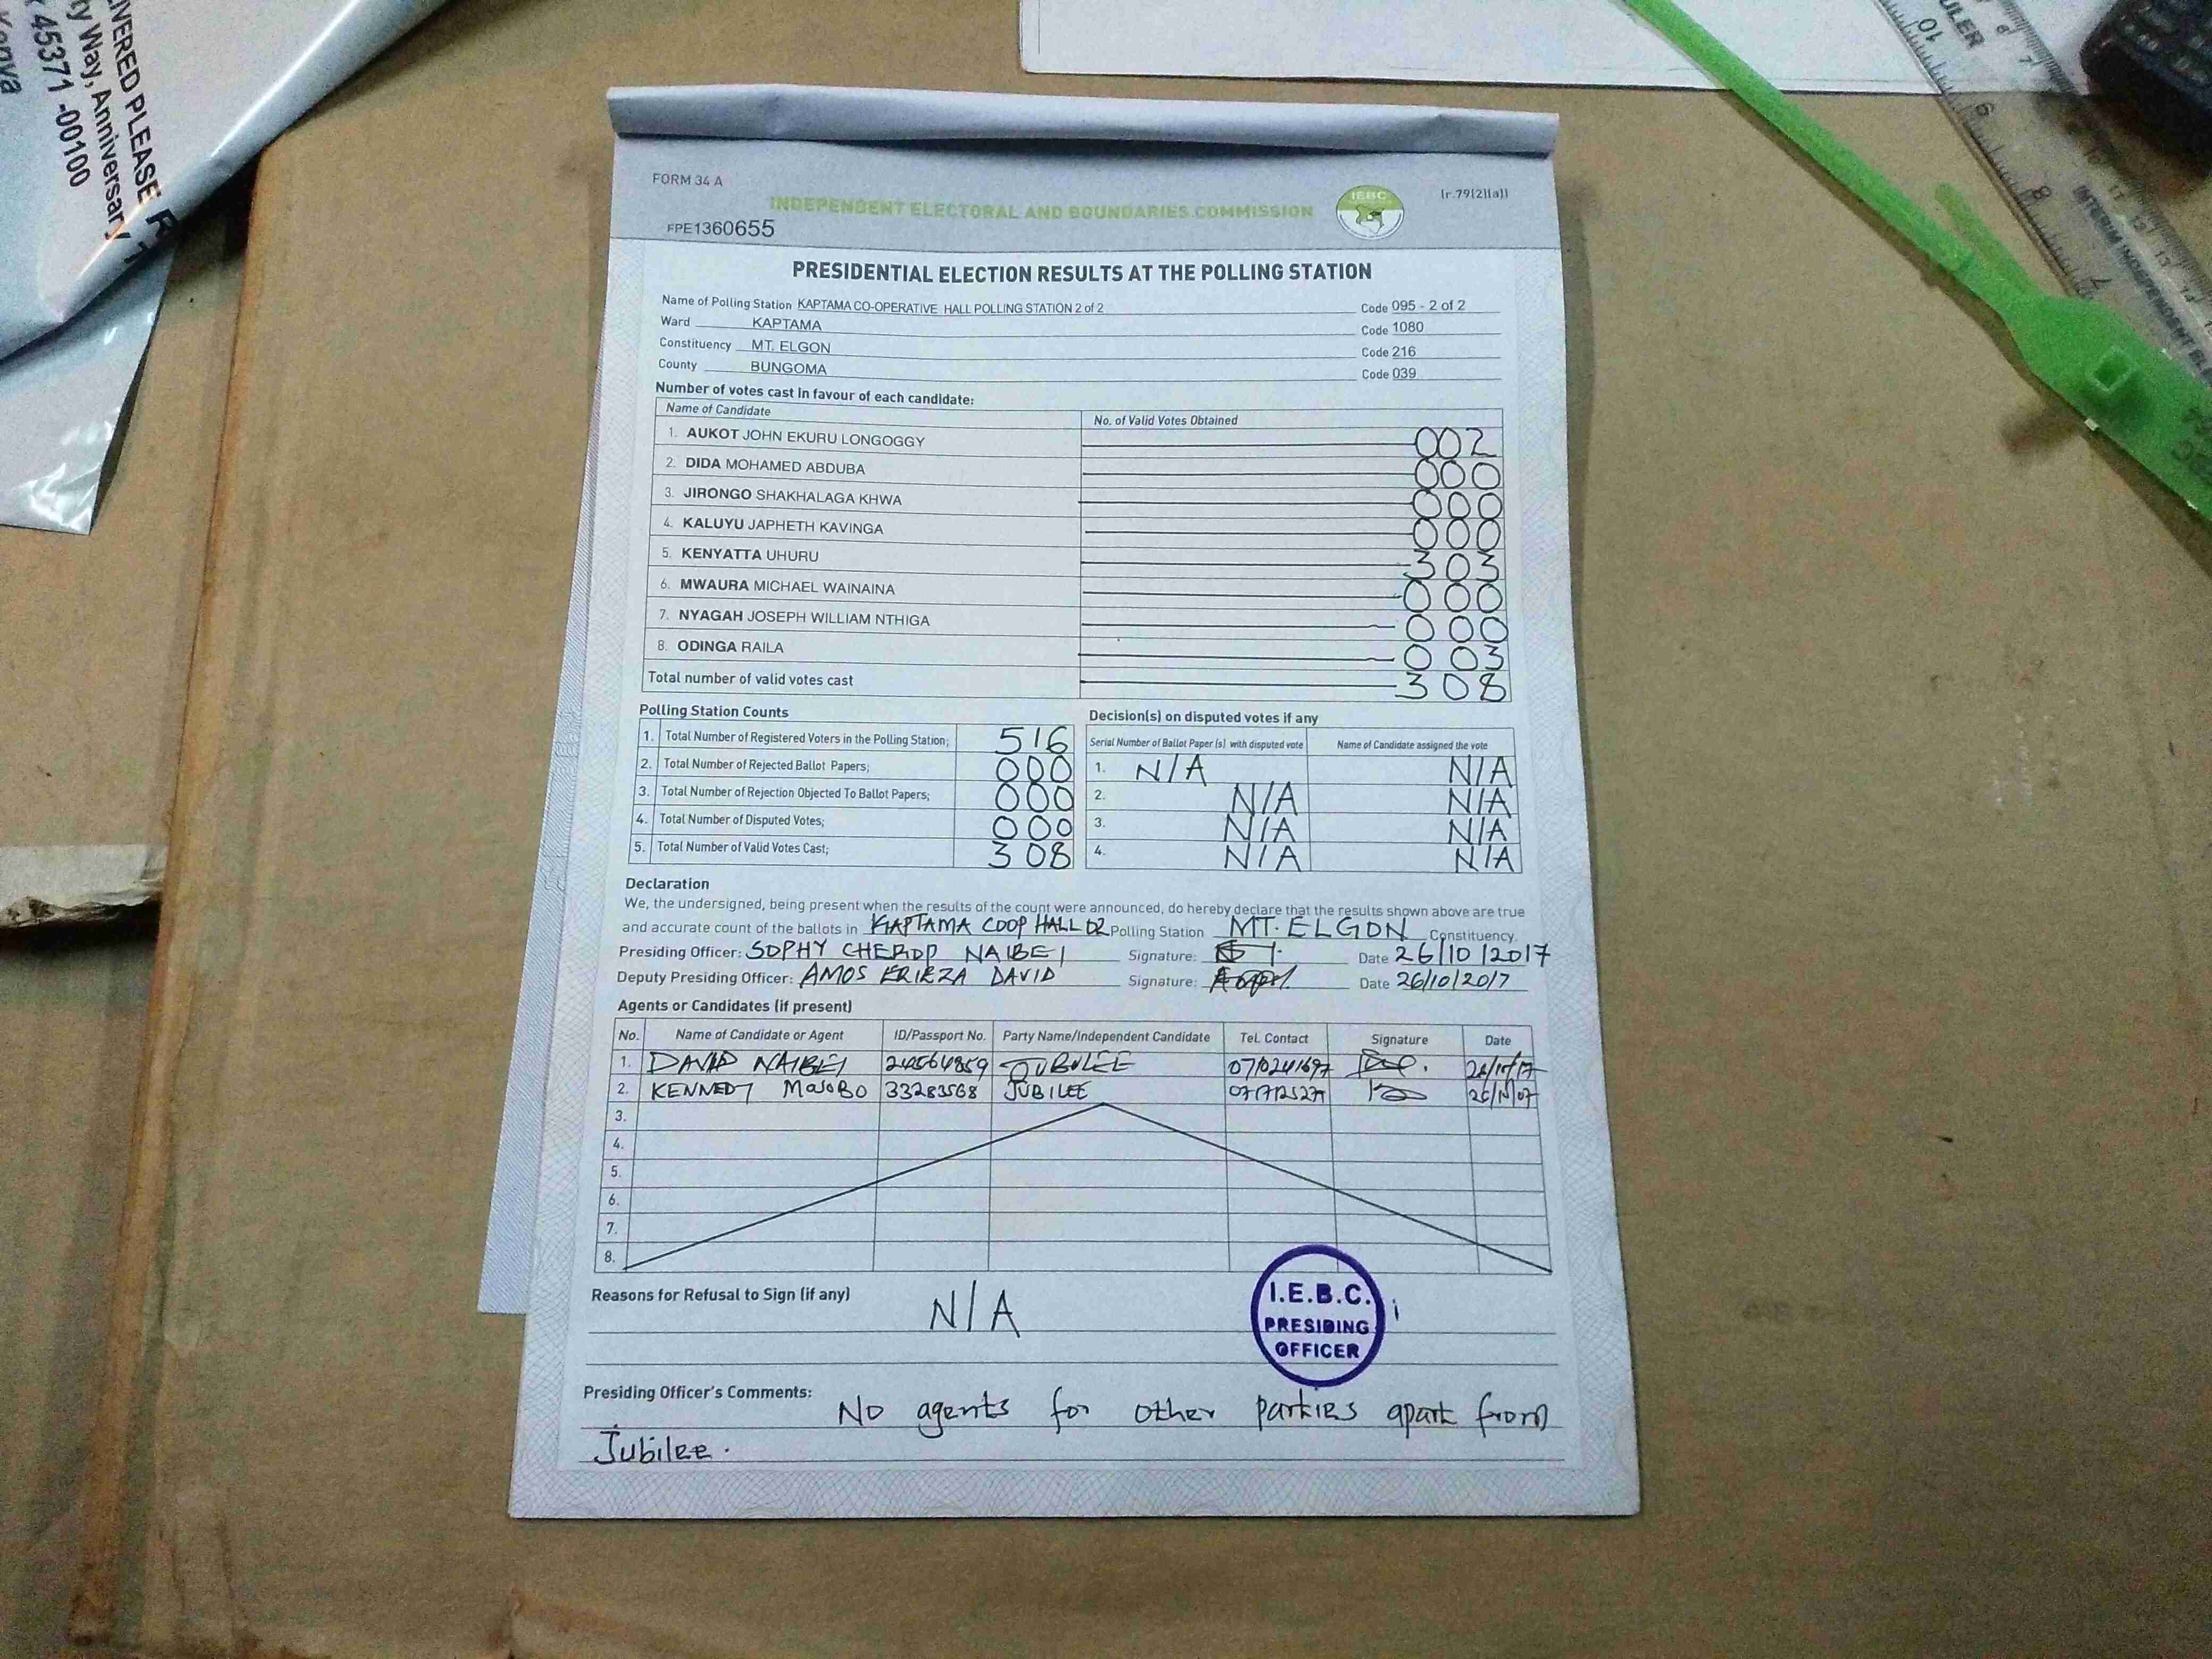 IVERED PLEASE
ty Way, Anniversary
45371 -00100
Kenya
RULER
FORM 34 A
INDEPENDENT ELECTORAL AND BOUNDARIES COMMISSION
IEBC
(r.79(2)(a))
FPE1360655
PRESIDENTIAL ELECTION RESULTS AT THE POLLING STATION
Name of Polling Station KAPTAMA CO-OPERATIVE HALL POLLING STATION 2 of 2 Code 095 - 2 of 2
Ward KAPTAMA Code 1080
Constituency MT. ELGON Code 216
County BUNGOMA Code 039
Number of votes cast in favour of each candidate:
Name of Candidate No. of Valid Votes Obtained
1. AUKOT JOHN EKURU LONGOGGY 002
2. DIDA MOHAMED ABDUBA 000
3. JIRONGO SHAKHALAGA KHWA 000
4. KALUYU JAPHETH KAVINGA 000
5. KENYATTA UHURU 303
6. MWAURA MICHAEL WAINAINA 000
7. NYAGAH JOSEPH WILLIAM NTHIGA 000
8. ODINGA RAILA 003
Total number of valid votes cast 308
Polling Station Counts
1. Total Number of Registered Voters in the Polling Station; 516
2. Total Number of Rejected Ballot Papers; 000
3. Total Number of Rejection Objected To Ballot Papers; 000
4. Total Number of Disputed Votes; 000
5. Total Number of Valid Votes Cast; 308
Decision(s) on disputed votes if any
Serial Number of Ballot Paper (s) with disputed vote Name of Candidate assigned the vote
1. N/A N/A
2. N/A N/A
3. N/A N/A
4. N/A N/A
Declaration
We, the undersigned, being present when the results of the count were announced, do hereby declare that the results shown above are true
and accurate count of the ballots in KAPTAMA COOP HALL 02 Polling Station MT. ELGON Constituency.
Presiding Officer: SOPHY CHEROP NAIBEI Signature: Date 26/10/2017
Deputy Presiding Officer: AMOS DAVID Signature: Date 26/10/2017
Agents or Candidates (if present)
No. Name of Candidate or Agent ID/Passport No. Party Name/Independent Candidate Tel. Contact Signature Date
1. DAVID NAIBEI 24564859 JUBILEE 0710241697
2. KENNEDY MASOBO 33283568 JUBILEE
3.
4.
5.
6.
7.
8.
Reasons for Refusal to Sign (if any) N/A
I.E.B.C.
PRESIDING
OFFICER
Presiding Officer's Comments: No agents for other parties apart from
Jubilee.